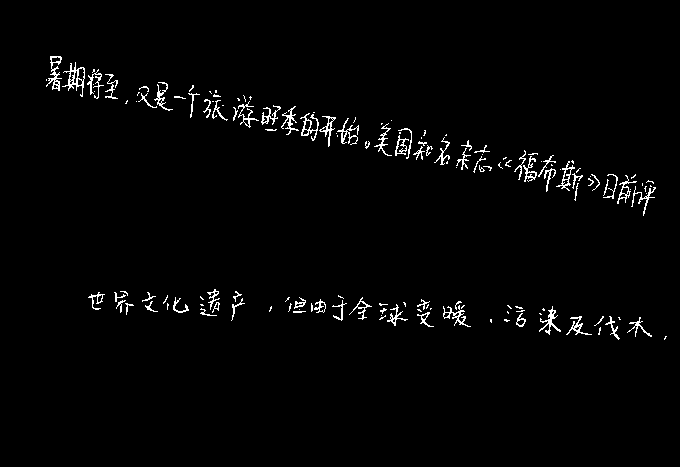 暑期将至,又是一个旅游旺季的开始。美国知名杂志《福布斯》日前评
世界文化遗产,但由于全球变暖、污染及伐木,